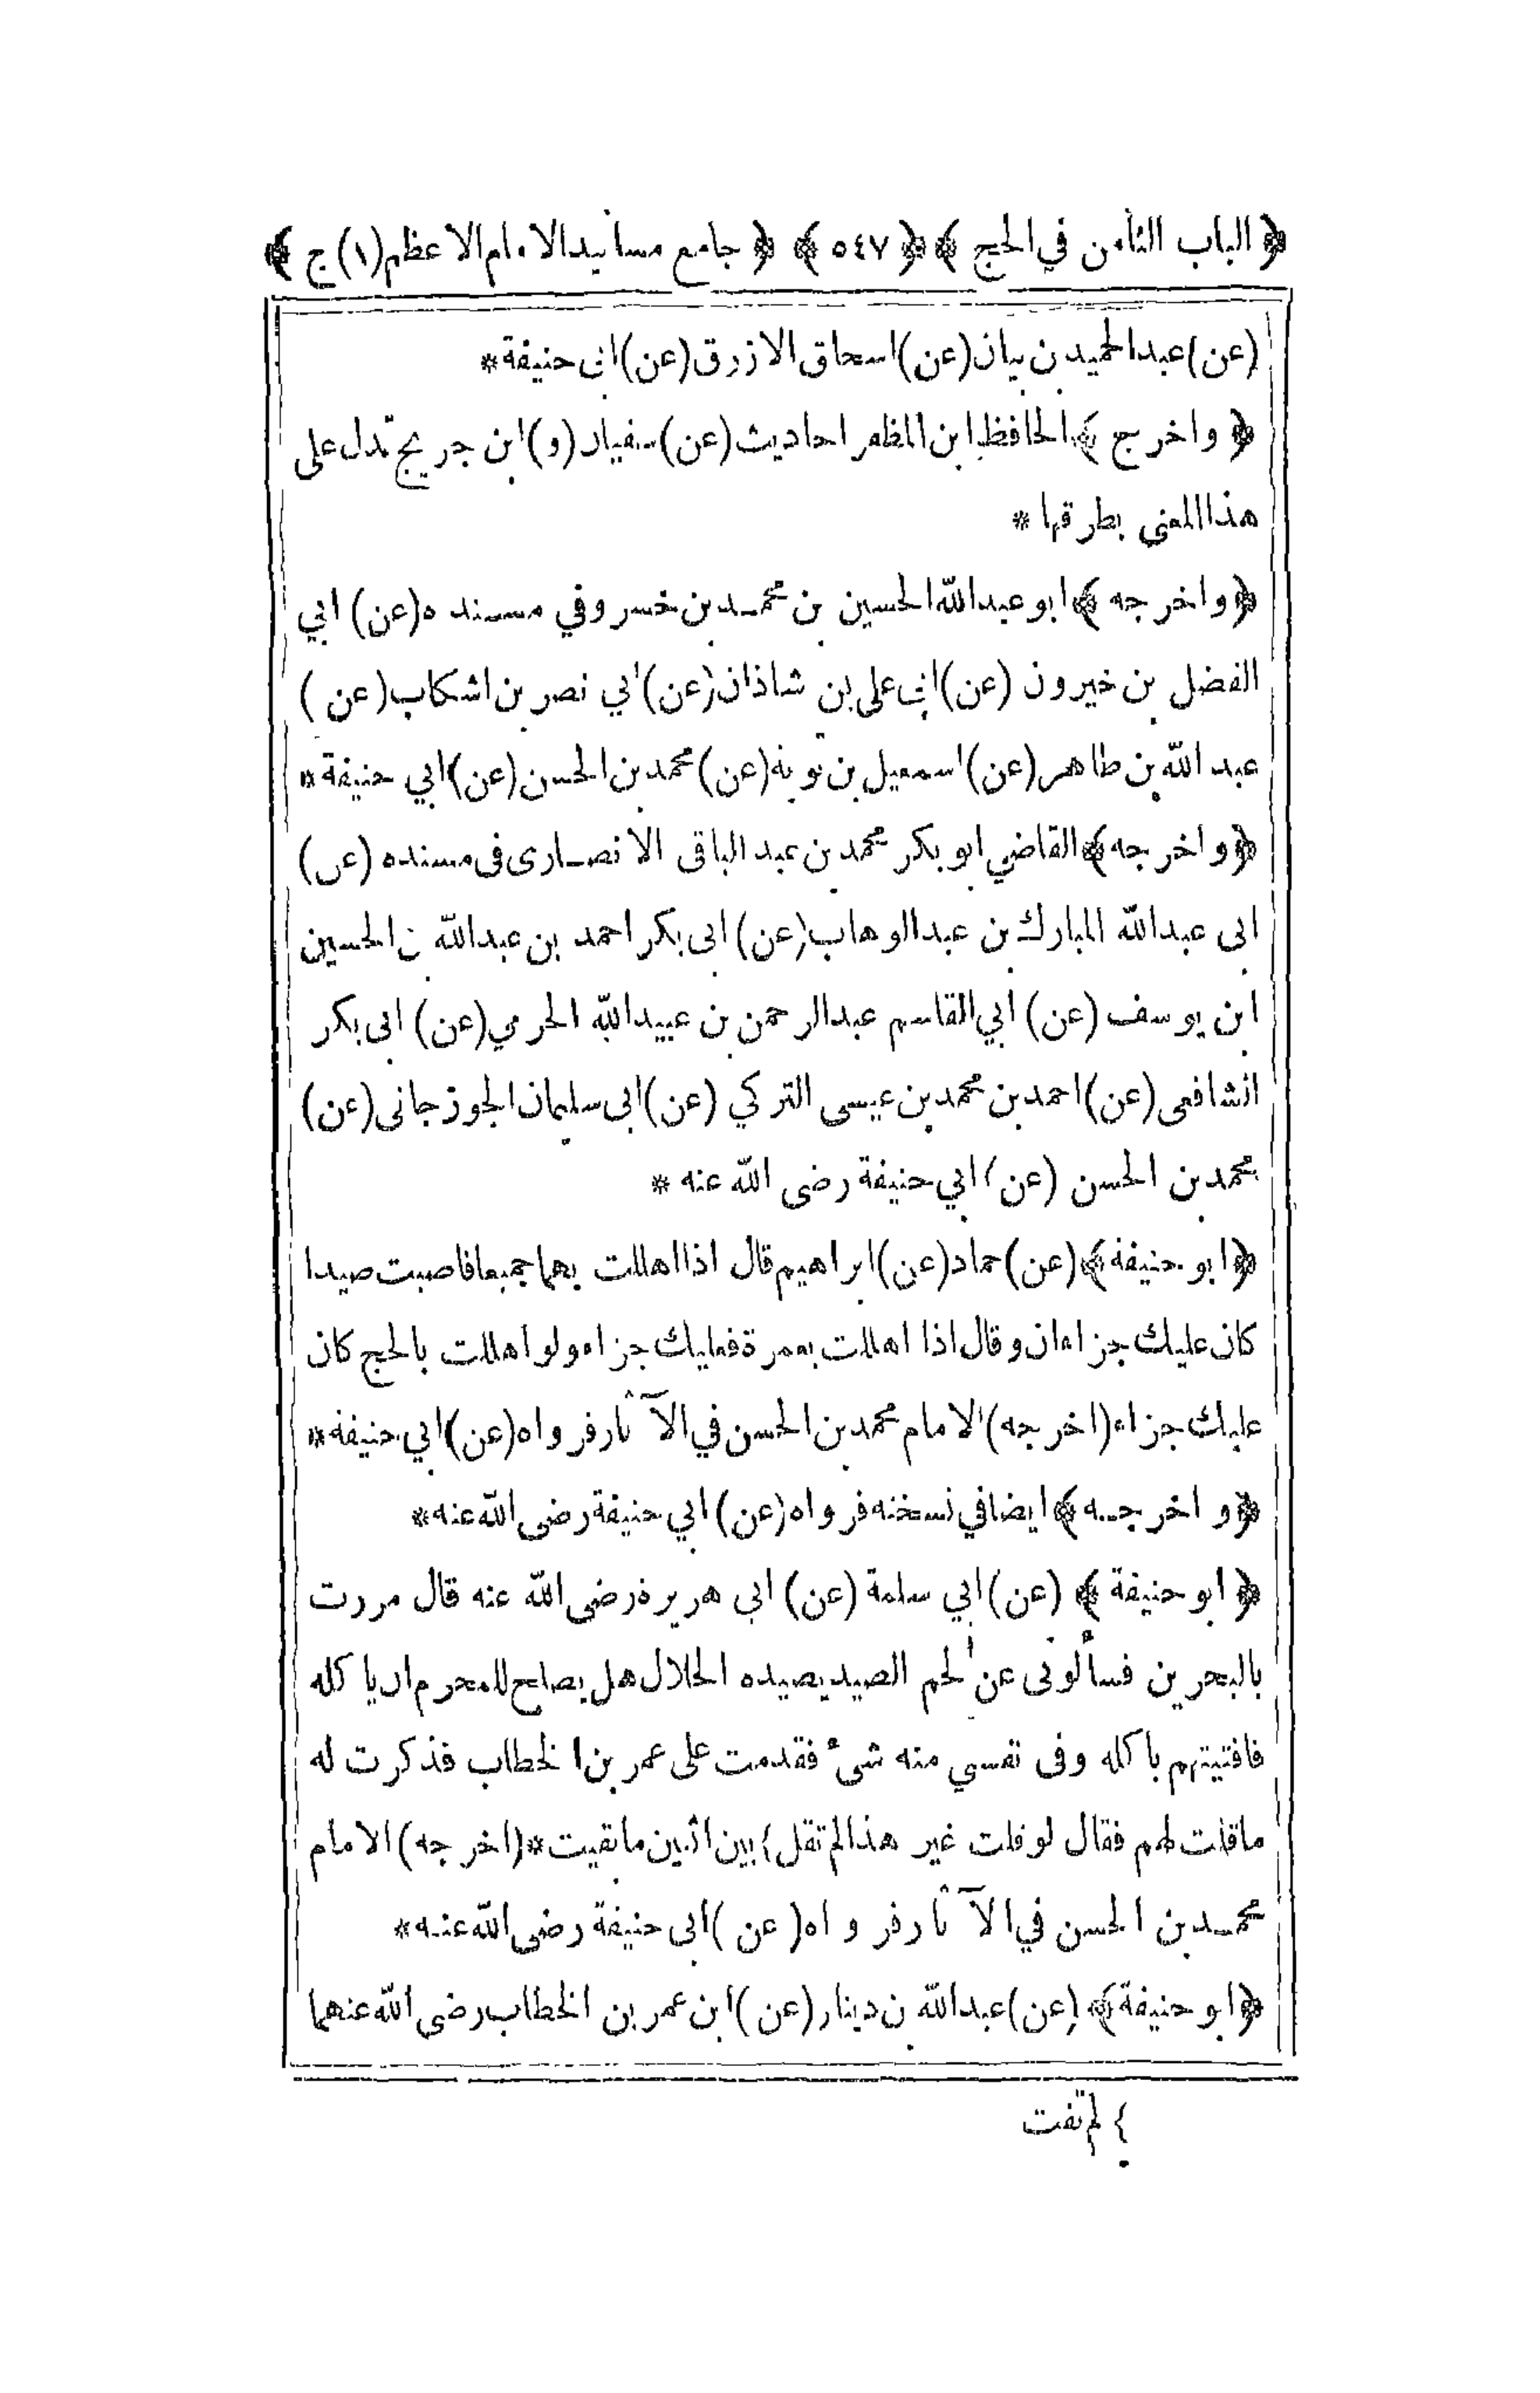 ﴿ الباب الثامن في الحج ﴾ ﴿ ٥٤٧ ﴾ ﴿ جامع مسانيد الامام الاعظم (١) ج ﴾
(عن) عبد الحميد بن بيان (عن) اسحاق الازرق (عن) ابى حنيفة *
﴿ واخرج ﴾ الحافظ ابن المظفر احاديث (عن) سفيان (و) ابن جريج تدل على
هذا المعنى بطرقها *
﴿ واخرجه ﴾ ابو عبد الله الحسين بن محمد بن خسرو في مسنده (عن) ابي
الفضل بن خيرون (عن) ابى على بن شاذان (عن) ابي نصر بن اشكاب (عن)
عبد الله بن طاهر (عن) اسمعيل بن توبة (عن) محمد بن الحسن (عن) ابي حنيفة *
﴿ واخرجه ﴾ القاضي ابو بكر محمد بن عبد الباقى الانصارى فى مسنده (عن)
ابى عبد الله المبارك بن عبد الوهاب (عن) ابى بكر احمد بن عبد الله بن الحسين
ابن يوسف (عن) ابي القاسم عبد الرحمن بن عبيد الله الحرمي (عن) ابى بكر
الشافعى (عن) احمد بن محمد بن عيسى التركي (عن) ابى سليمان الجوزجانى (عن)
محمد بن الحسن (عن) ابي حنيفة رضى الله عنه *
﴿ ابو حنيفة ﴾ (عن) حماد (عن) ابراهيم قال اذا اهللت بهما جميعا فاصبت صيدا
كان عليك جزاءان وقال اذا اهللت بعمرة فعليك جزاء ولو اهللت بالحج كان
عليك جزاء (اخرجه) الامام محمد بن الحسن في الآثار فرواه (عن) ابي حنيفة *
﴿ واخرجه ﴾ ايضا في نسخته فرواه (عن) ابي حنيفة رضى الله عنه *
﴿ ابو حنيفة ﴾ (عن) ابي سلمة (عن) ابى هريرة رضى الله عنه قال مررت
بالبحرين فسألونى عن لحم الصيد يصيده الحلال هل يصلح للمحرم ان ياكله
فافتيتهم باكله وفى نفسي منه شىء فقدمت على عمر بن الخطاب فذكرت له
ما قلت لهم فقال لو قلت غير هذا لم تقل } بين اثنين ما بقيت * (اخرجه) الامام
محمد بن الحسن في الآثار فرواه (عن) ابى حنيفة رضى الله عنه *
﴿ ابو حنيفة ﴾ (عن) عبد الله بن دينار (عن) ابن عمر بن الخطاب رضى الله عنهما
} لم تفت